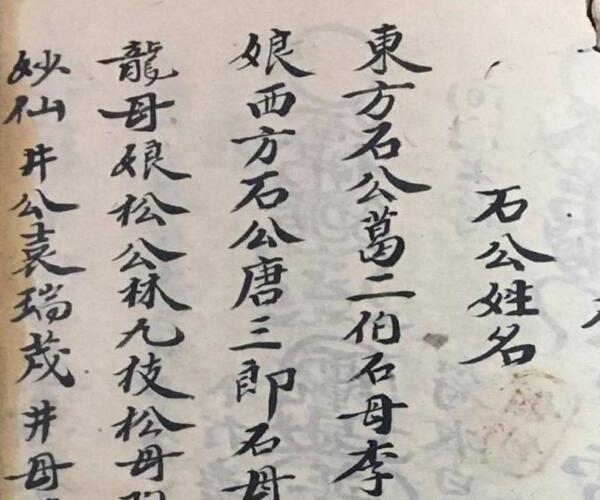 石公姓名
東方石公葛二伯石母李
娘西方石公唐三郎石母
龍母娘松公林九枝松母
妙仙井公袁瑞茂井母